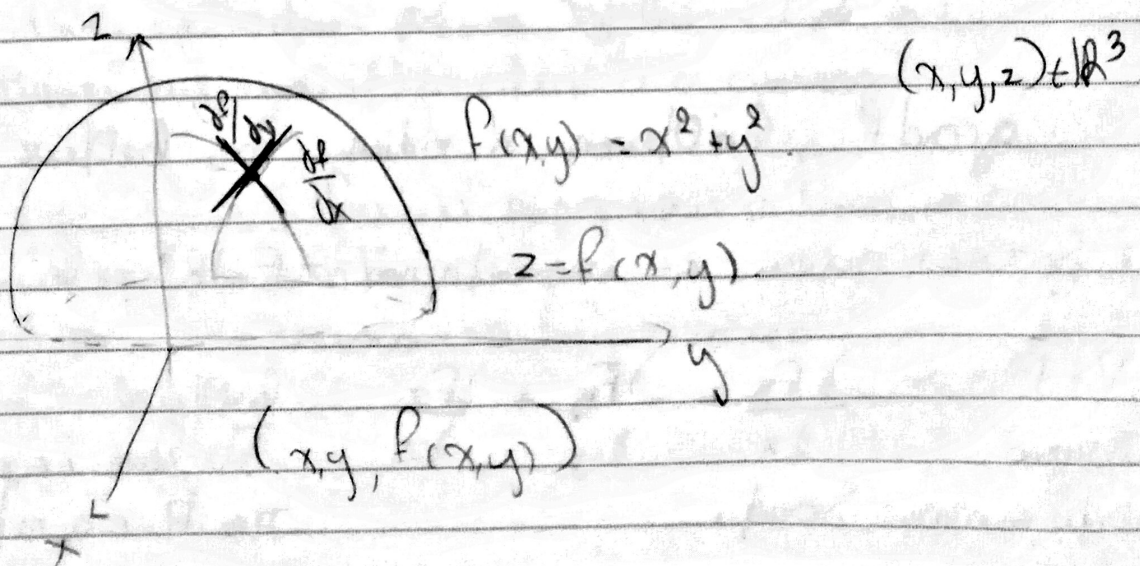 z
(x, y, z) ∈ ℝ³
∂f/∂y
∂f/∂x
f(x,y) = x² + y²
z = f(x, y).
y
(x, y, f(x, y))
x